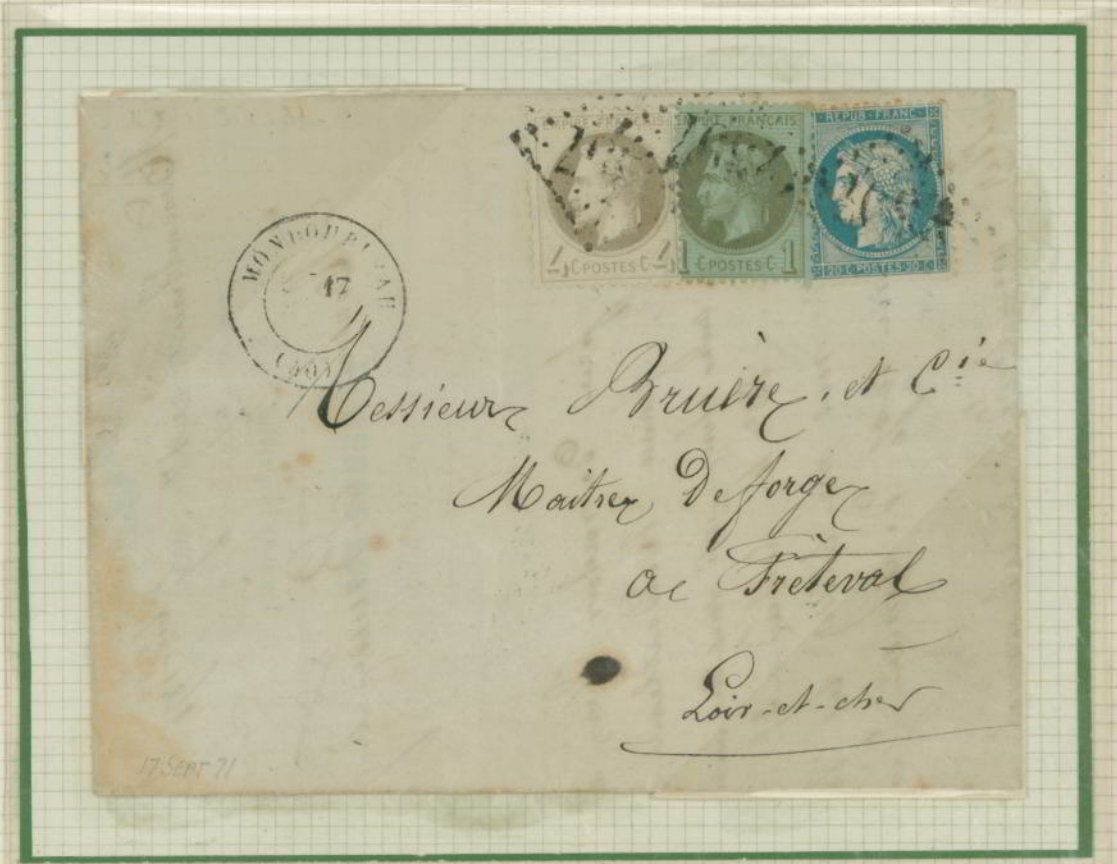 EMPIRE FRANÇAIS
4 C POSTES C 4
EMPIRE FRANÇAIS
1 C POSTES C 1
REPUB · FRANC ·
20 C · POSTES · 20 C
17
(46)
Messieurs Bruère et Cie
Maitres De forges
a Fréteval
Loir-et-cher
17 SEPT 71